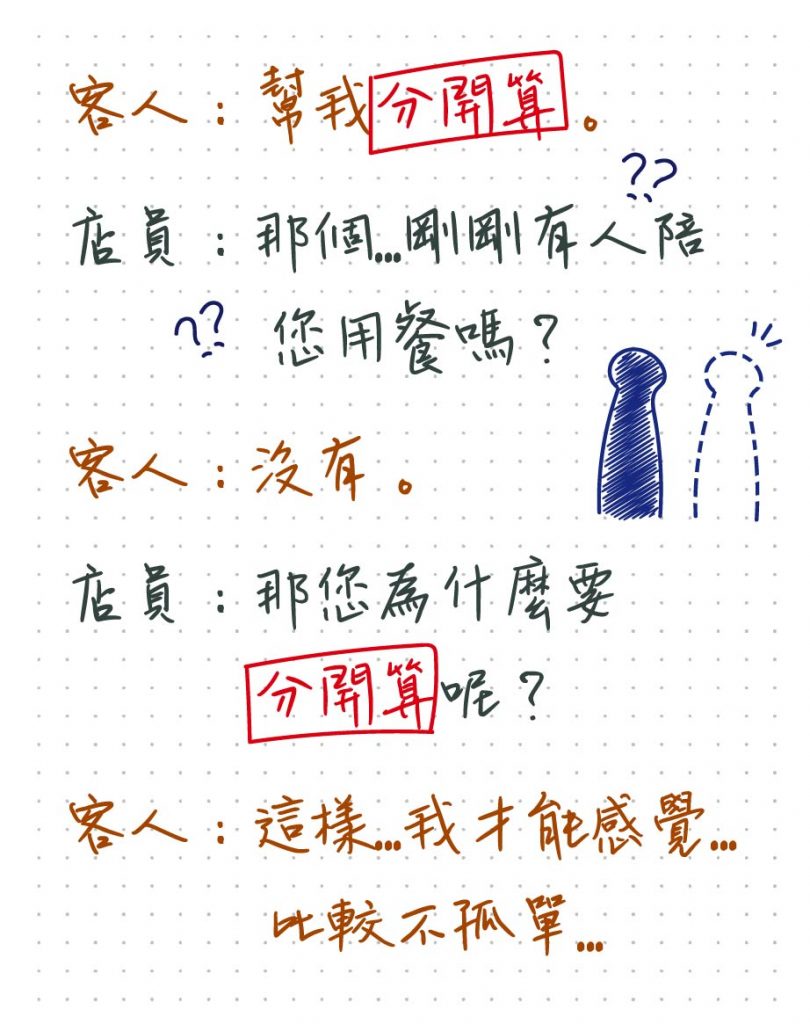 客人：幫我分開算。
??
店員：那個...剛剛有人陪
??
您用餐嗎？
客人：沒有。
店員：那您為什麼要
分開算呢？
客人：這樣...我才能感覺...
比較不孤單...